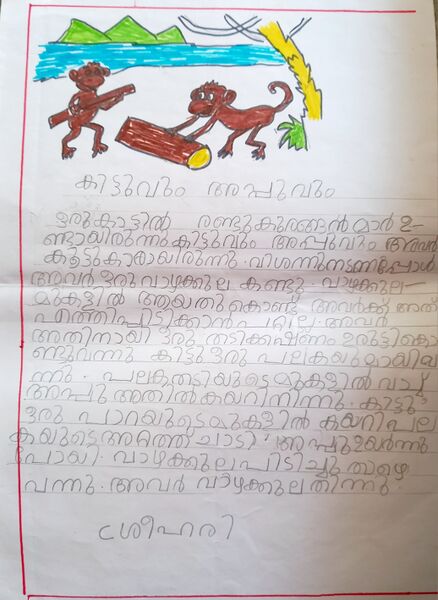 കിട്ടുവും അപ്പുവും
ഒരുകാട്ടിൽ രണ്ടുകുരങ്ങൻമാർ ഉ-
ണ്ടായിരുന്നു കിട്ടുവും അപ്പുവും അവർ
കൂട്ടുകാരായിരുന്നു. വിശന്നുനടന്നപ്പോൾ
അവർ ഒരു വാഴക്കുല കണ്ടു. വാഴക്കുല-
മുകളിൽ ആയതു കൊണ്ട് അവർക്ക് അത്
എത്തിപ്പിടിക്കാൻ പറ്റില്ല. അവർ
അതിനായി ഒരു തടിക്കഷ്ണം ഉരുട്ടികൊ
ണ്ടുവന്നു കിട്ടു ഒരു പലകയുമായിവ
ന്നു. പലകതടിയുടെമുകളിൽ വച്ച്
അപ്പു അതിൽകയറിനിന്നു കിട്ടു
ഒരു പാറയുടെമുകളിൽ കയറി പല
കയുടെഅറ്റത്ത് ചാടി അപ്പുഉയർന്നു
പോയി. വാഴക്കുലപിടിച്ചു താഴെ
വന്നു. അവർ വാഴക്കുലതിന്നു.
ശ്രീഹരി